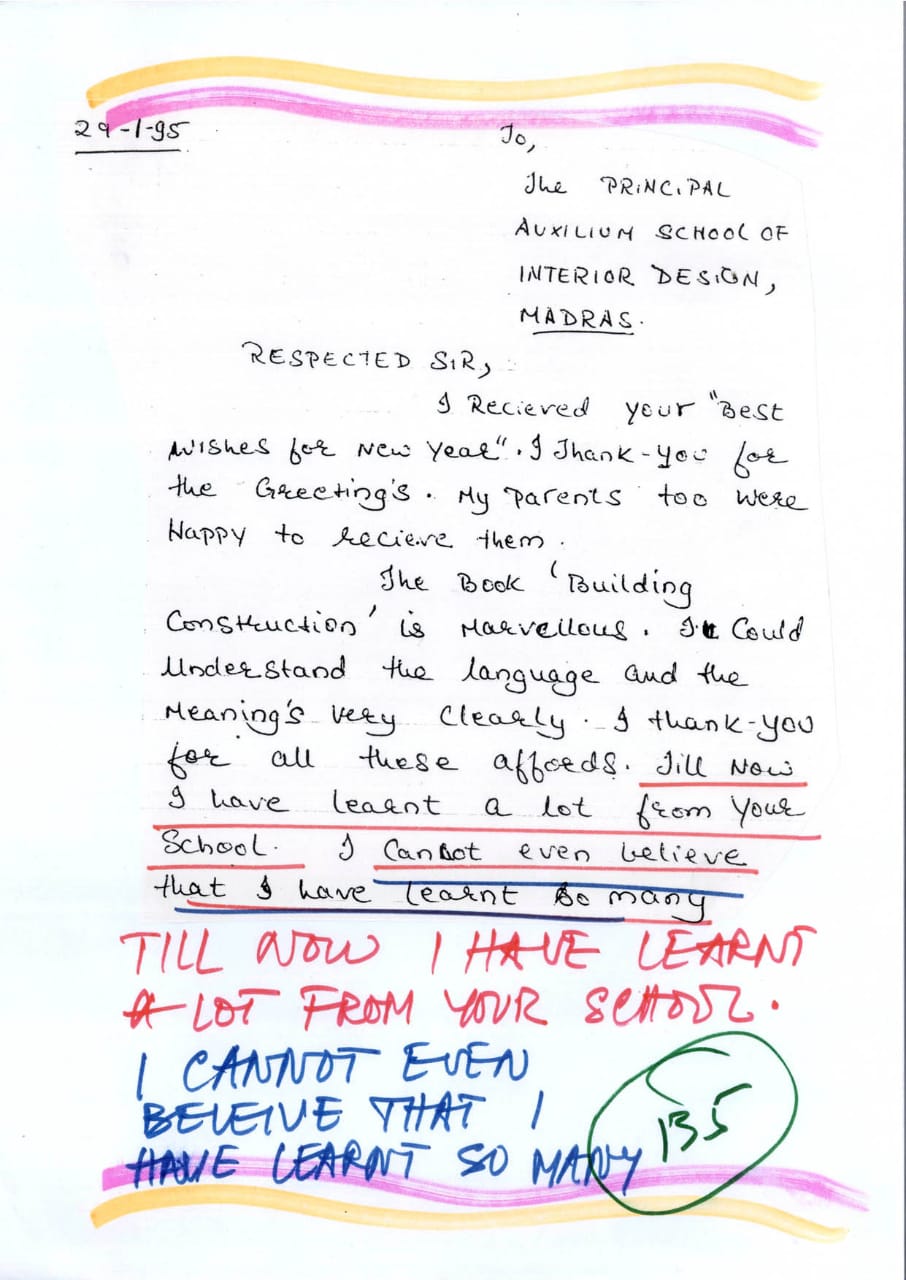 29-1-95
To,
The PRINCIPAL
AUXILIUM SCHOOL OF
INTERIOR DESIGN,
MADRAS.
RESPECTED SIR,
I Recieved your "Best
wishes for New Year". I Thank-you for
the Greeting's. My parents too were
Happy to recieve them.
The Book 'Building
Construction' is Marvellous. I Could
Understand the language and the
Meaning's very clearly. I thank-you
for all these affords. Till Now
I have learnt a lot from your
School. I Cannot even believe
that I have learnt so many
TILL NOW I HAVE LEARNT
A LOT FROM YOUR SCHOOL.
I CANNOT EVEN
BELEIVE THAT I
HAVE LEARNT SO MANY
135